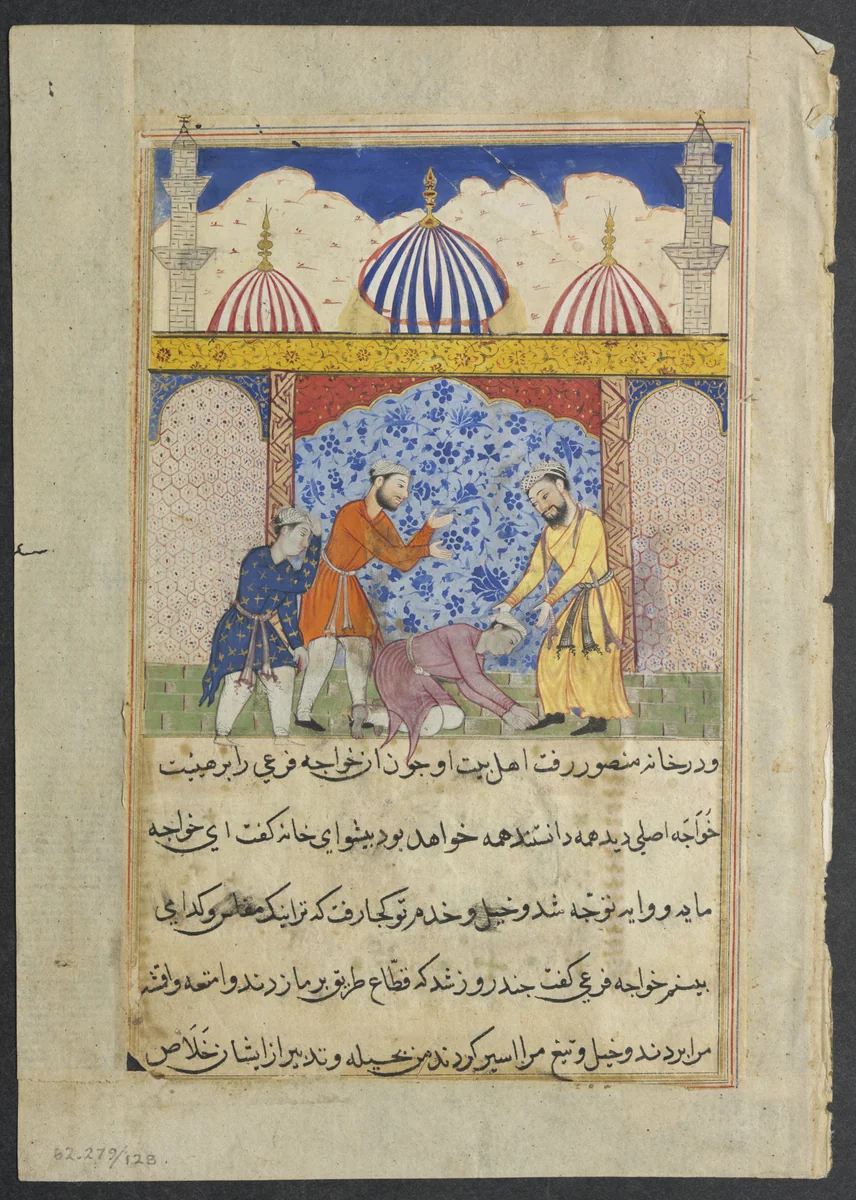 ودر خانه منصور رفت اهل بیت او جون ان خواجه فرعی را بر هیئت
خَوَاجَه اصلی دید همه دانستند همه خواهد بود بیشوای خانه کفت ای خواجه
مایه و وایه توجّه شد و خیل و خدم تو کجا رفت که ترا اینک مفلس و کدای
بینم خواجه فرعی کفت جند روز شد که قطّاع طریق بر ما زدند و امتعه و اقشه
مرا بردند و خیل و تبع مرا اسیر کردند من بحیله و تدبیر از ایشان خَلَاص
62.279/128.